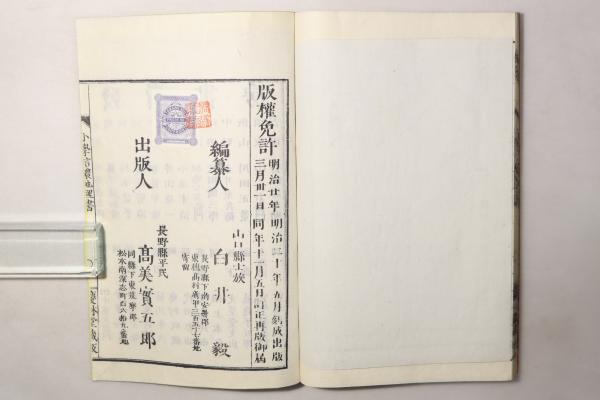 版權免許 明治廿年三月廿一日
明治二十年五月刻成出版
同年十二月五日訂正再版御届
編纂人
山口縣士族
白井毅
長野縣下南安曇郡
東穗高村
番地
寄留
出版人
長野縣平民
高美實五郎
同縣下東筑摩郡
松本南深志町百六拾九番地
小學信濃地理書
慶林堂蔵版